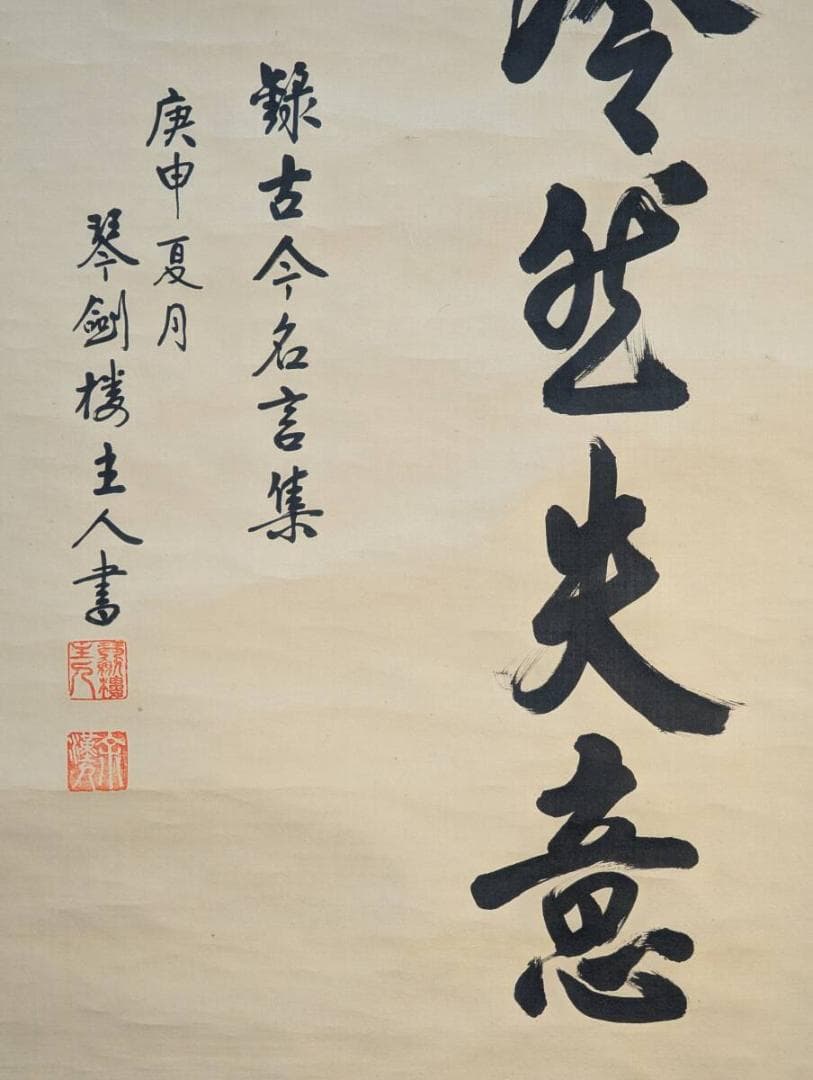 然失意
錄古今名言集
庚申夏月
琴劍楼主人書